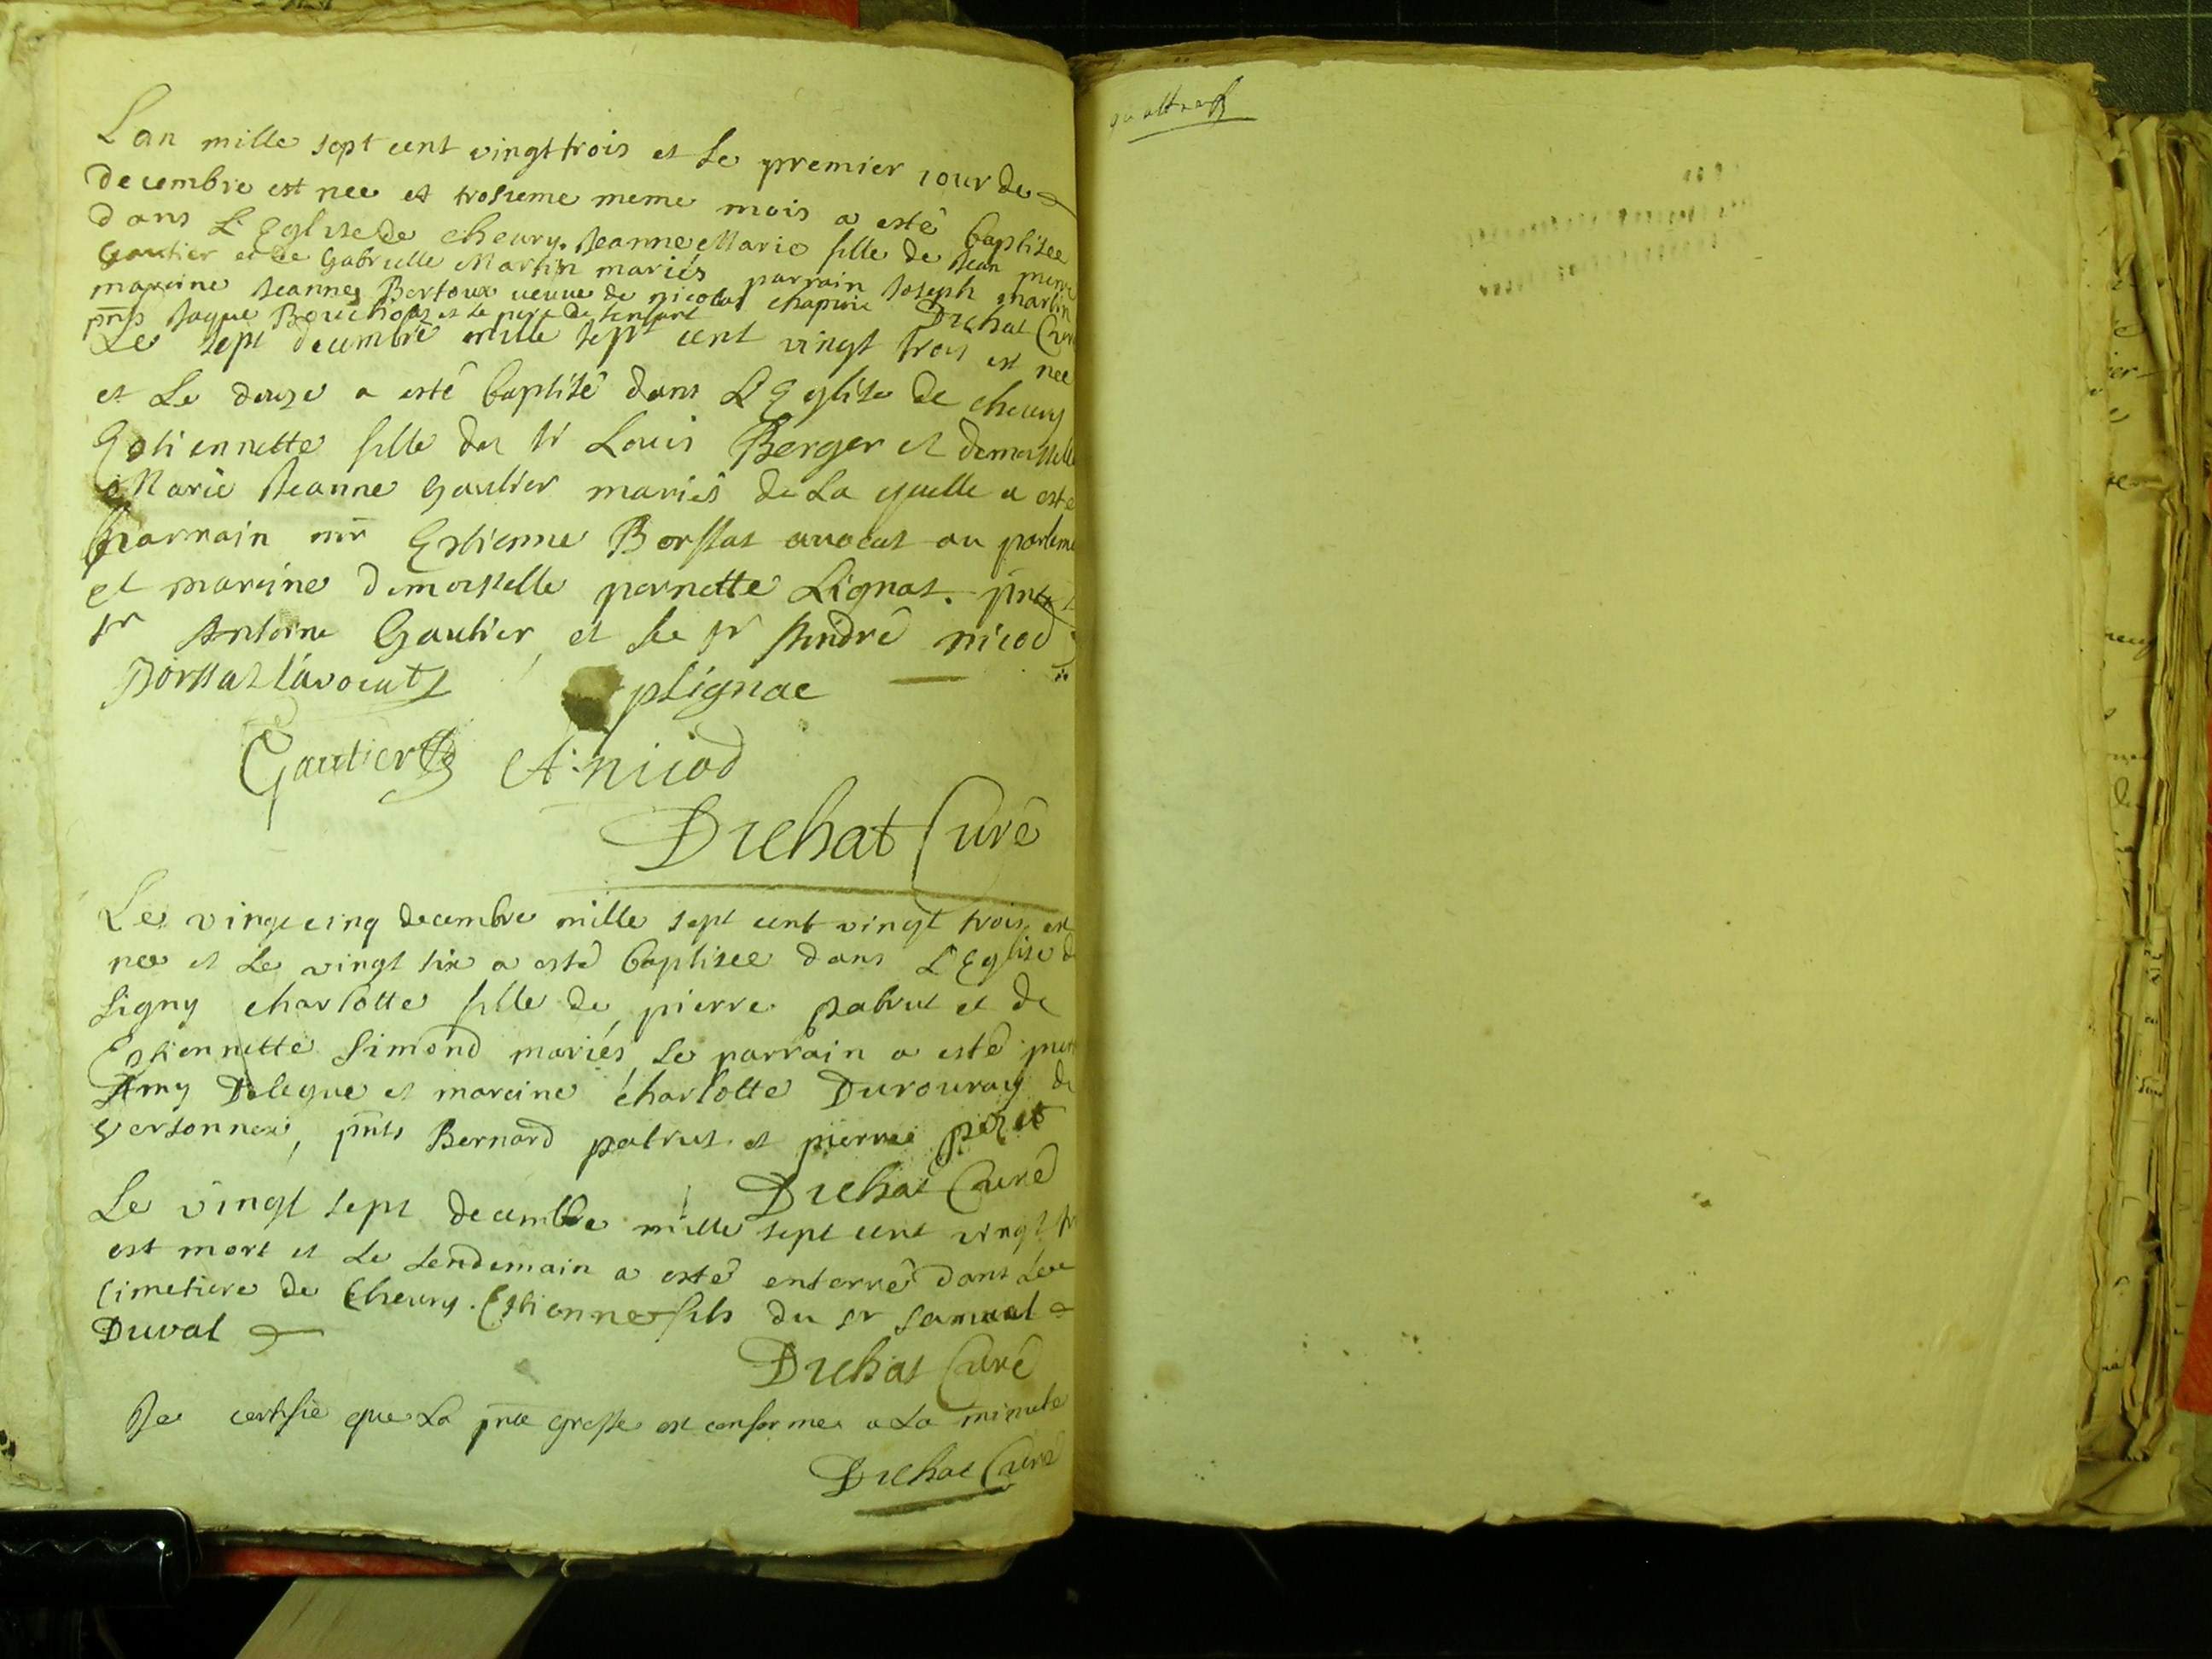 Lan mille sept cent vingt trois et le premier iour de
decembre est nee et trosieme meme mois a esté baptisee
dans L'Eglise de cheury. Jeanne Marie fille de Jean pierre
Gautier et de Gabrielle Martin mariés parrain Joseph martin
mareine Jeanne Bertoux ueuue de nicolas chapuis
pnts Jaque Bouchoz et le pere de lenfant Duchat Curé
Le sept decembre mille sept cent vingt trois est nee
et Le douze a esté baptisé dans L'Eglise de cheury
Estiennette fille du sr Louis Berger et demoiselle
Marie Jeanne Gautier mariés de La quelle a esté
parrain mr Estienne Borssat auocat au parleme
et mareine demoiselle pernette Lignat. pnts
sr Antoine Gautier et le sr André nicod
Borssat lavocat pLignac
Gautier A. nicod
Duchat Curé
Le vingt cinq decembre mille sept cent vingt trois est
nee et Le vingt six a esté baptisee dans L'Eglise d
Signy charlotte fille de pierre patrut et de
Estiennette Simond mariés, Le parrain a esté
Amy Delegue et mareine charlotte Durouray de
Versonnex, pnts Bernard patrut et pierre
Duchat Curé
Le vingt sept decembre mille sept cent vingt tr
est mort et Le Lendemain a esté enterré dans Le
cimetiere de Cheury. Estienne fils du sr Samuel
Duval
Duchat Curé
Je certifie que La pnte grosse est conforme a La minute
Duchat Curé